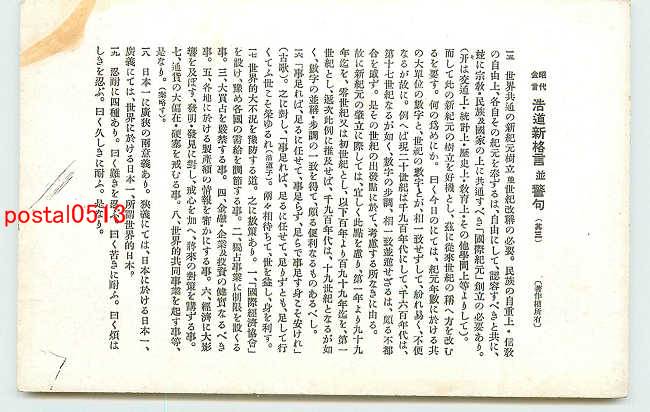 昭代
金言 浩道新格言 並 警句 (其三) (著作權所有)
一五 世界共通の新紀元樹立並世紀改稱の必要。民族の自重上・信敎
の自由上、各自その紀元を奉ずるは、自由にして、認容すべきと共に、
玆に宗敎・民族及國家の上に共通すべき「國際紀元」創立の必要あり。
(并は交通上・統計上・歷史上・敎育上・その他學問上等よりして)。
而して此の新紀元の樹立を好機とし、玆に從來世紀の稱へ方を改む
るを要す。何の爲めにか。曰く今日のにては、紀元年數に於ける共
の大單位の數字と、世紀の數字とが、相一致せずして、紛れ易く、不便
なるが故に。例へば現二十世紀は千九百年代にして、千六百年代は、
第十七世紀なるが如く、數字の步調、相一致並進せざるは、頗る不都
合を感ず。是その世紀の出發點に於て、考慮する所なきに由る。
故に新紀元の肇立に際しては、宜しく此點を慮り、第一年より九十九
年迄を、零世紀又は初世紀とし、以下百年より百九十九年迄を、第一
世紀とし、逐次此例に推及せば、千九百年代は、十九世紀となるが如
く、數字の並稱・步調の一致を得て、頗る便利なるものあるべし。
一六 「事足れば、足るに任せて、事足らず、足らで事足す身こそ安けれ」
(古歌)。之に對し、「事足れば、足るに任せて、足りずとも、足して行
くてふ世こそ榮ゆるれ(浩道子)。兩々相待ちて、世を益し、身を利す。
一七 世界的大不況を豫防する道。之に數策あり。一、「國際經濟協會」
を設け、豫め各國の需給を調節する事。二、獨占事業に制限を設くる
事。三、大買占を嚴禁する事。四、金融・企業及投資の健實なるべき
事。五、各地に於ける製產額の情報を審かにする事。六、經濟に大影
響を及ぼす、發明・發見に對し、戒心を加へ、將來の對策を講ずる事。
七、通貨の大偏在・硬塞を戒むる事。八、世界的共同事業を起す事等、
是なり。(案略す)。
一八 日本一に廣狹の兩意義あり。狹義にては、日本に於ける日本一、
廣義にては、世界に於ける日本一、所謂世界的日本。
一九 忍耐に四種あり。曰く難きを忍ぶ。曰く苦さに耐ふ。曰く煩は
しきを忍ぶ。曰く久しきに耐ふ。並なり。
postal0513